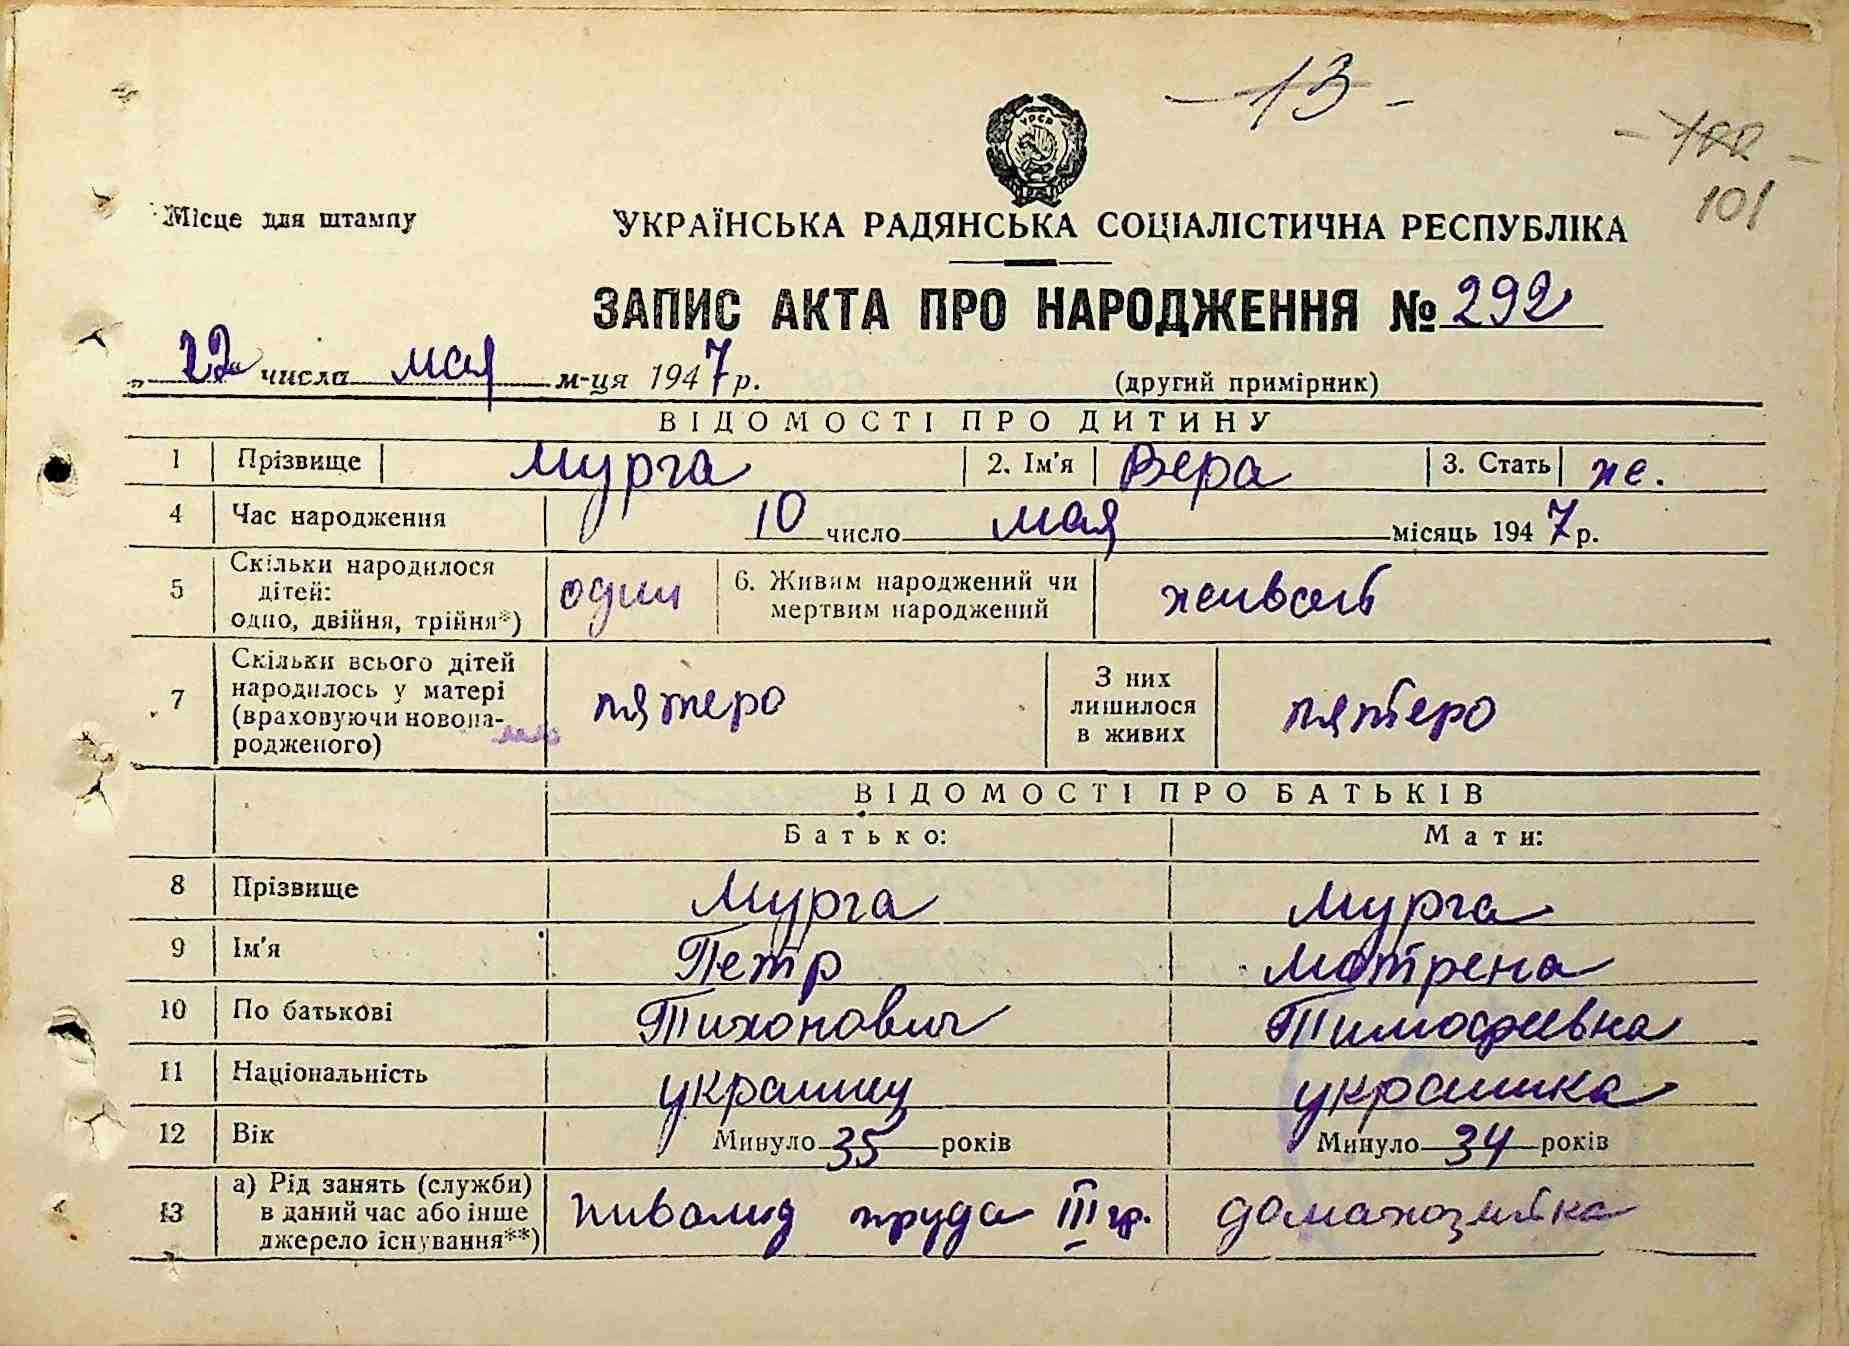 - 13 -
- 100 -
101
УРСР
Місце для штампу
УКРАЇНСЬКА РАДЯНСЬКА СОЦІАЛІСТИЧНА РЕСПУБЛІКА
ЗАПИС АКТА ПРО НАРОДЖЕННЯ № 292
„22“ числа мая м-ця 1947 р.
(другий примірник)
ВІДОМОСТІ ПРО ДИТИНУ
1 Прізвище Мурга 2. Ім'я Вера 3. Стать ж.
4 Час народження 10 число мая місяць 1947 р.
5 Скільки народилося дітей: одно, двійня, трійня*) один 6. Живим народжений чи мертвим народжений живой
7 Скільки всього дітей народилось у матері (враховуючи новонародженого) пятеро З них лишилося в живих пятеро
ВІДОМОСТІ ПРО БАТЬКІВ
Батько: Мати:
8 Прізвище Мурга Мурга
9 Ім'я Петр Мотрена
10 По батькові Тихонович Тимофеевна
11 Національність украинец украинка
12 Вік Минуло 35 років Минуло 34 років
13 а) Рід занять (служби) в даний час або інше джерело існування**) инвалид труда III гр. домахозяйка